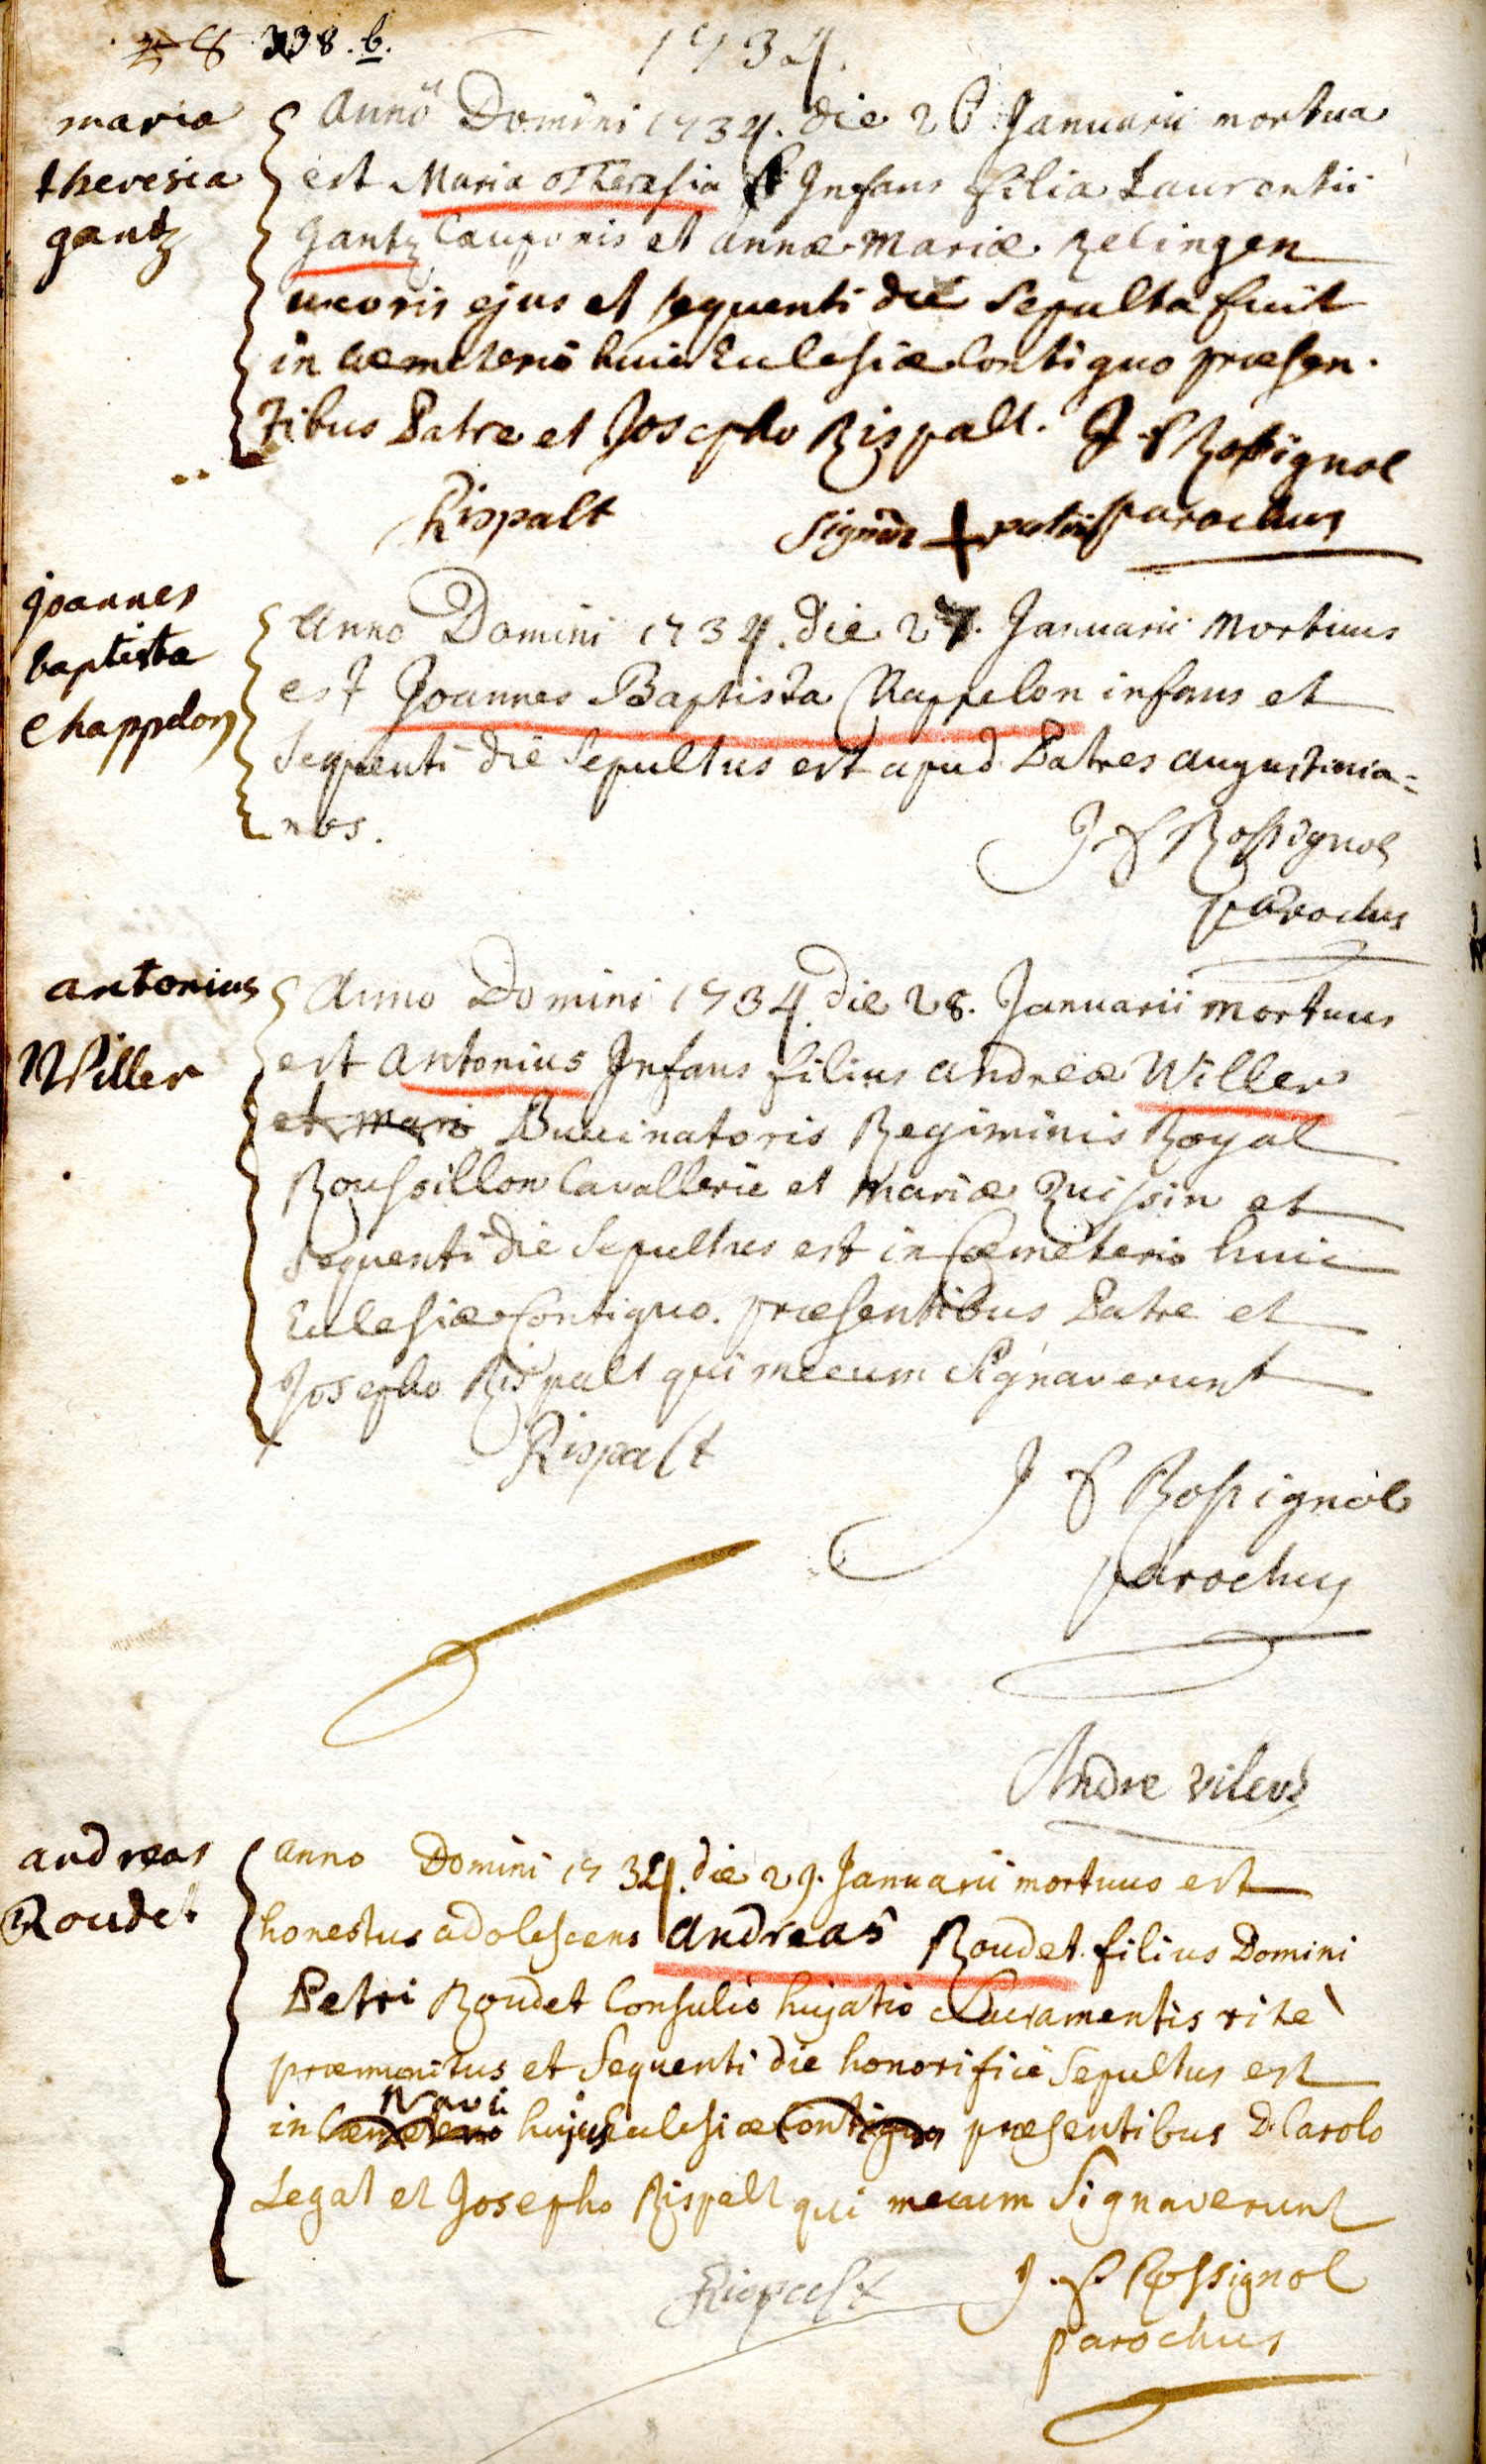 338. b.
1734.
maria
theresia
gantz
Anno Domini 1734. die 26 Januarii mortua
est Maria Theresia Infans filia Laurentii
Gantz Cauponis et Annæ Mariæ Zelingen
uxoris ejus et sequenti die Sepulta fuit
in Cœmeterio huic Ecclesiæ Contiguo præsen-
tibus Patre et Josepho Rispalt. J F Rossignol
Rispalt Signum + patris parochus
joannes
baptista
chappelon
Anno Domini 1734. die 27. Januarii Mortuus
est Joannes Baptista Chappelon infans et
Sequenti die Sepultus est apud Patres Augustinia=
nos.
J F Rossignol
parochus
antonius
Willer
Anno Domini 1734 die 28. Januarii mortuus
est Antonius Infans filius Andreæ Willer
et Mari Buccinatoris Regiminis Royal
Roussillon Cavallerie et Mariæ Quissin et
Sequenti die Sepultus est in Cœmeterio huic
Ecclesiæ Contiguo. præsentibus Patre et
Josepho Rispalt qui mecum Signaverunt
Rispalt
J F Rossignol
parochus
Andre vileur
andreas
Roudet
Anno Domini 1734. die 29. Januarii mortuus est
honestus adolescens Andreas Roudet filius Domini
Petri Roudet Consulis hujatis Sacramentis ritè
præmunitus et Sequenti die honorificè Sepultus est
Navi
in Cœmeterio hujus Ecclesiæ Contiguo præsentibus D. Carolo
Legat et Josepho Rispalt qui mecum Signaverunt
Rispalt J. F. Rossignol
parochus